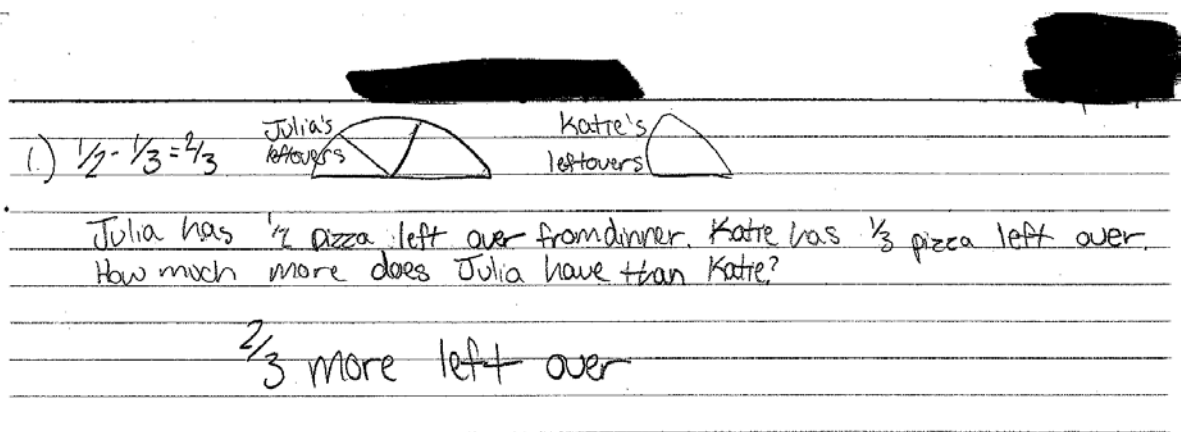 1.) 1/2 - 1/3 = 2/3 Julia's leftovers Katie's leftovers
Julia has 1/2 pizza left over from dinner. Katie has 1/3 pizza left over.
How much more does Julia have than Katie?
2/3 more left over